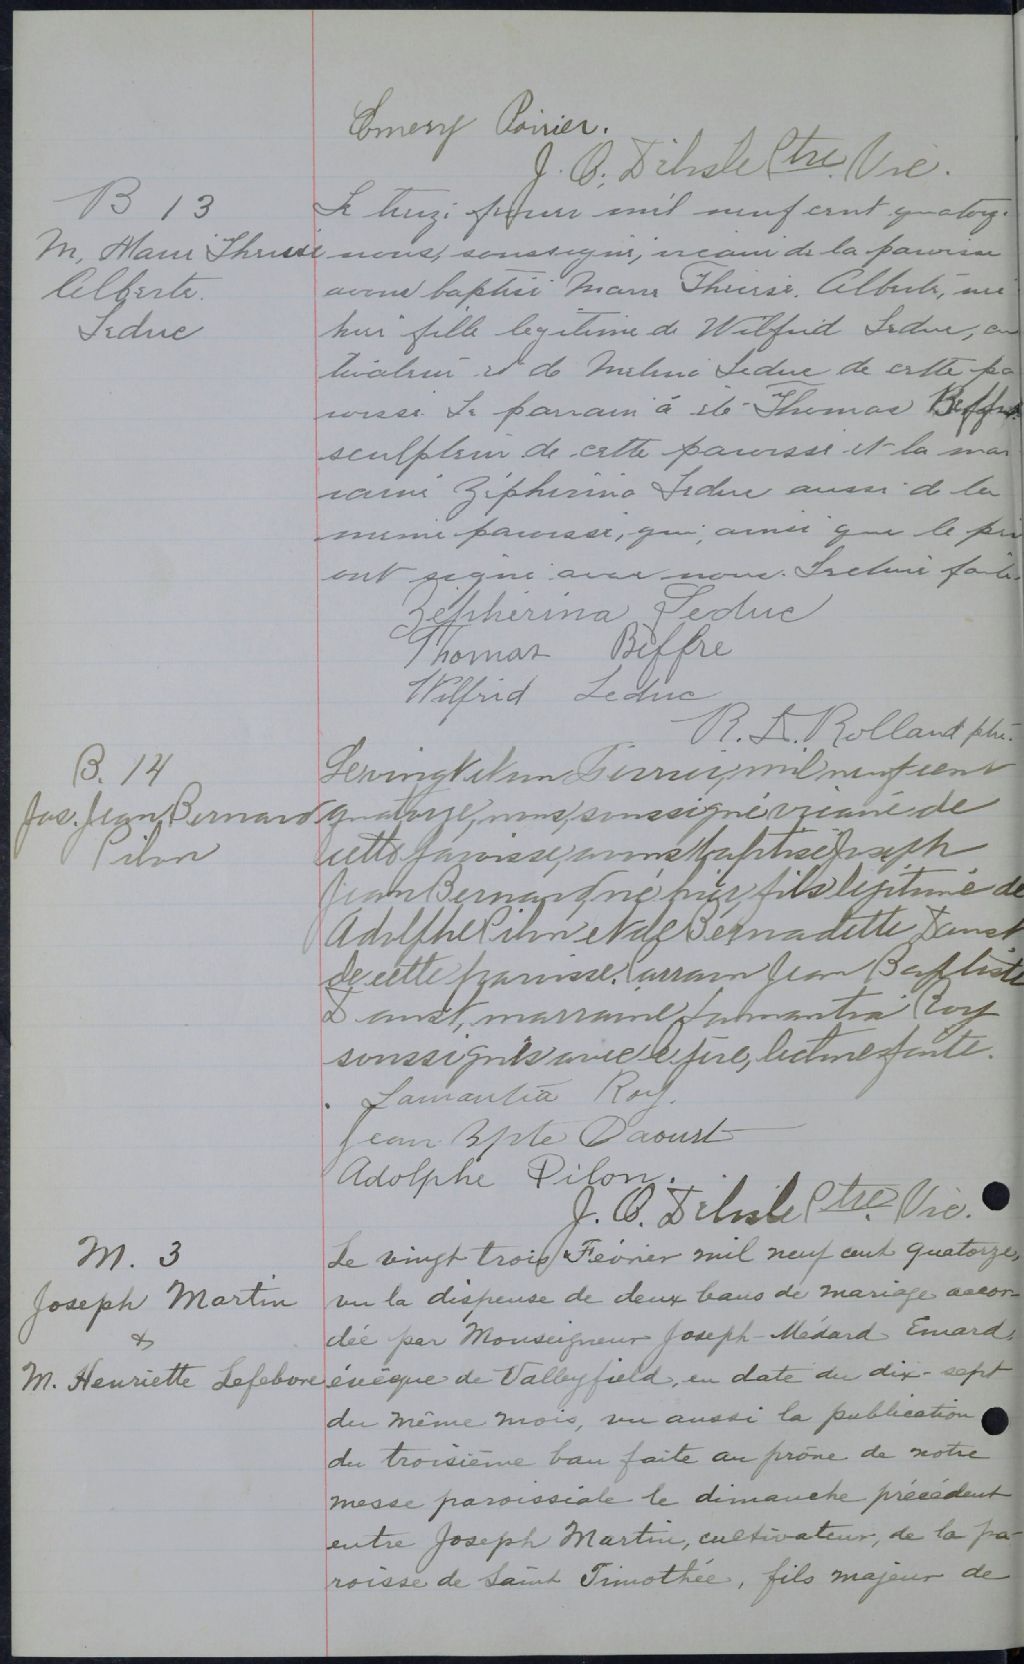 Emery Poirier.
J. O. Delisle Ptre. Vic.
B 13
M. Marie Therese
Alberte.
Leduc
Le treize fevrier mil neuf cent quatorze
nous, soussigné, vicaire de la paroisse
avons baptisé Marie Therese Alberte, née
hier fille legitime de Wilfrid Leduc, cul
tivateur et de Melina Leduc de cette pa
roisse. Le parrain à été Thomas Biffre
sculpteur de cette paroisse et la mar
raine Zéphirina Leduc aussi de la
meme paroisse, qui, ainsi que le père
ont signé avec nous. Lecture faite.
Zéphirina Leduc
Thomas Biffre
Wilfrid Leduc
R. Rolland ptre.
B. 14
Jos. Jean Bernard
Pilon
Le vingt et un Fevrier, mil neuf cent
quatorze, nous, soussigné vicaire de
cette paroisse, avons baptisé Joseph
Jean Bernard né hier, fils légitime de
Adolphe Pilon et de Bernadette Daoust
de cette paroisse. Parrain Jean Baptiste
Daoust, marraine Lamantia Roy
soussignés avec le père, lecture faite.
Lamantia Roy.
Jean Bpte Daoust
Adolphe Pilon.
J. O. Delisle Ptre. Vic.
M. 3
Joseph Martin
&
M. Henriette Lefebvre
Le vingt trois Février mil neuf cent quatorze,
vu la dispense de deux bans de mariage accor-
dée par Monseigneur Joseph-Médard Emard,
évêque de Valleyfield, en date du dix-sept
du même mois, vu aussi la publication
du troisième ban faite au prône de notre
messe paroissiale le dimanche précédent
entre Joseph Martin, cultivateur, de la pa-
roisse de Saint Timothée, fils majeur de